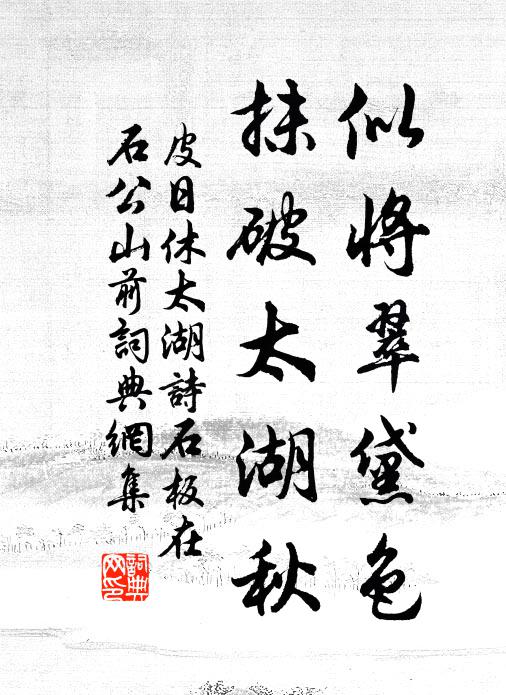 似將翠黛色
抹破太湖秋
皮日休太湖詩石板在
石公山前詞典網集
詞典网印